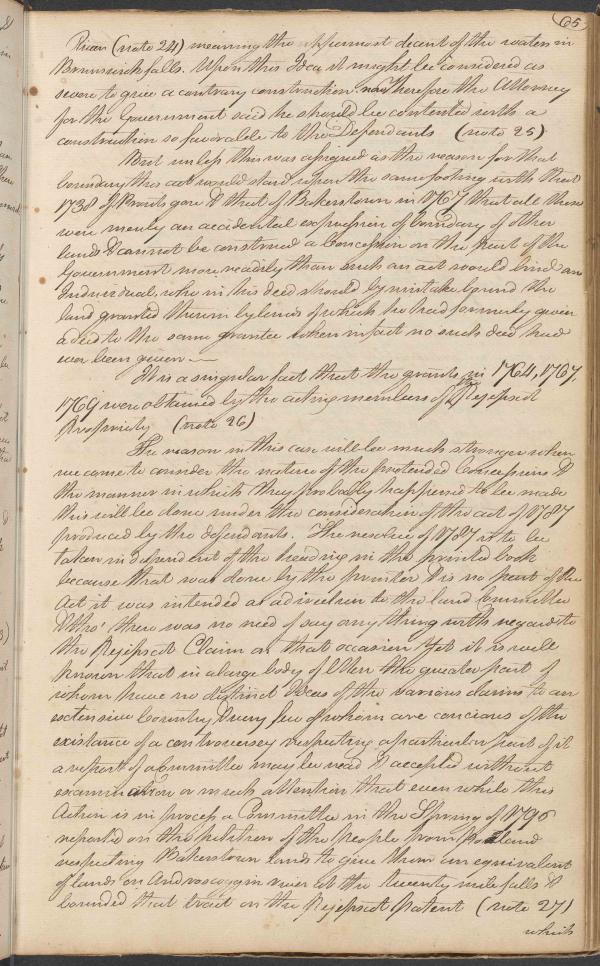 65
River (note 24) meaning the uppermost decent of the water in
Brunswick falls. Upon this Idea it might be considered as
severe to give a contrary construction Therefore the Attorney
for the Government said he should be contented with a
construction so favorable to the Defendants (note 25)
But unless this was assigned as the reason for that
boundary this act would stand upon the same footing with that
1738 & that of Bakerstown in 1767 that all these
were merely an accidental expression of boundary of other
lands & cannot be construed a Concession on the part of the
Government more readily than such an act would bind an
Individual, who in his deed should by mistake bound the
land granted therein by lands of which he had formerly given
a deed to the same grantee when in fact no such deed had
ever been given —
It is a singular fact that the grants in 1764, 1767,
1769 were obtained by the acting members of the Pejepscot
Propriety (note 26)
The reason in this case will be much stronger when
we come to consider the nature of the pretended Concessions &
the manner in which they probably happened to be made
this will be done under the consideration of the act of 1787
produced by the defendants. The resolve of 1787 is to be
taken independent of the heading in the printed book
because that was done by the printer & is no part of the
Act it was intended as a direction to the land Committee
& tho' there was no need of say any thing with regard to
the Pejepscot Claim on that occasion Yet it is well
known that in a large body of Men the greater part of
whom have no distinct Ideas of the various claims to an
extensive Country & very few of whom are concious of the
existance of a controversey respecting a particular part of it
a report of a Committee may be read & accepted without
examination or much attention that even while this
Action is in process a Committee in the Spring of 1796
reported on the petition of the people from Portland
respecting Bakerstown lands to give them an equivalent
of lands on Androscoggin river at the twenty mile falls &
bounded that tract on the Pejepscot Patent (note 27)
which